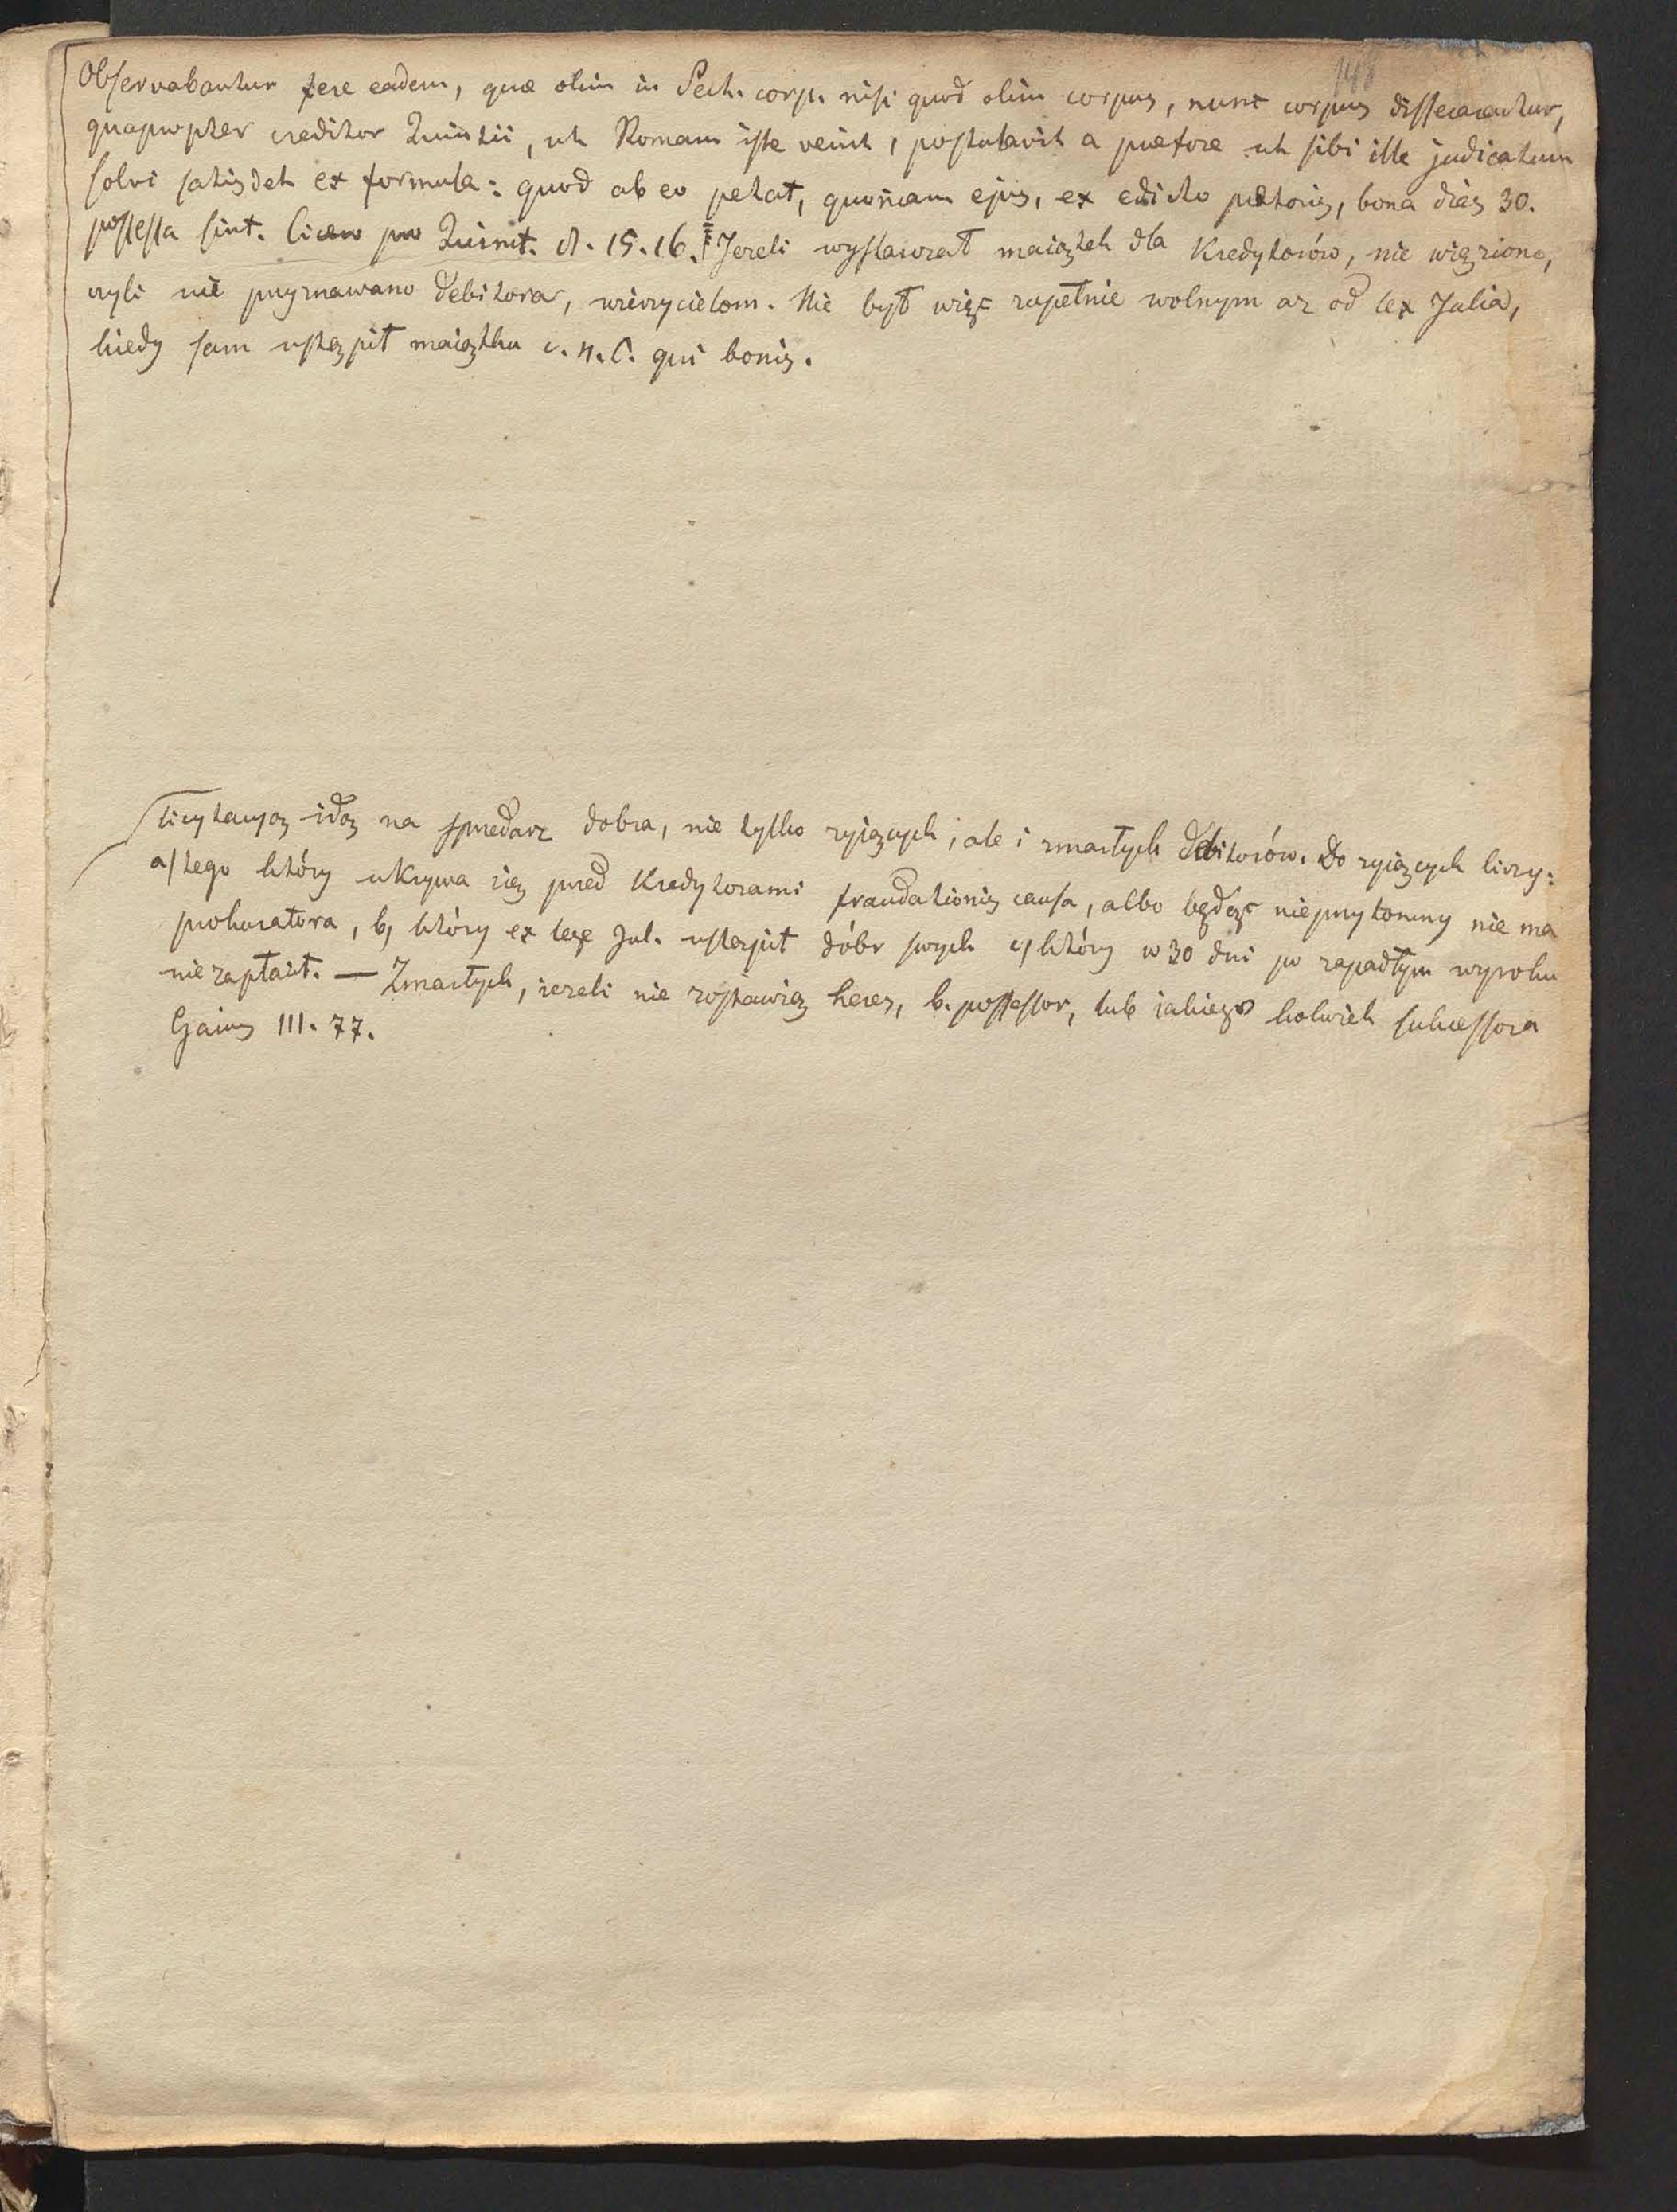 148
Observabantur fere eadem, quæ olim in Sect. corp. nisi quod olim corpus, nunc corpus dissecarentur,
quapropter creditor Quintii, ut Romam iste venit, postulavit a prætore ut sibi ille judicatum
solvi satisdet ex formula: quod ab eo petat, quoniam ejus, ex edicto prætoris, bona dies 30.
possessa sint. Cicero pro Quinct. 8. 15. 16. Jezeli wystawzał maiątek dla Kredytorów, nie więziono,
czyli nie przyznawano debitora, wierzycielom. Nie był więc zupełnie wolnym az od lex Julia,
kiedy sam ustąpił maiątku c. n. C. qui bonis.
Licytacyą idą na sprzedarz dobra, nie tylko zyiących, ale i zmarłych debitorów. Do zyiących liczy:
a/ tego który ukrywa się przed Kredytorami fraudationis causa, albo będąc nieprzytomny nie ma
prokuratora, b/ który ex lege Jul. ustąpił dóbr swych c/ który w 30 dni po zapadłym wyroku
nie zapłacił. — Zmarłych, iezeli nie zostawią heres, b. possessor, lub iakiego kolwiek sukcessora
Gaius III. 77.